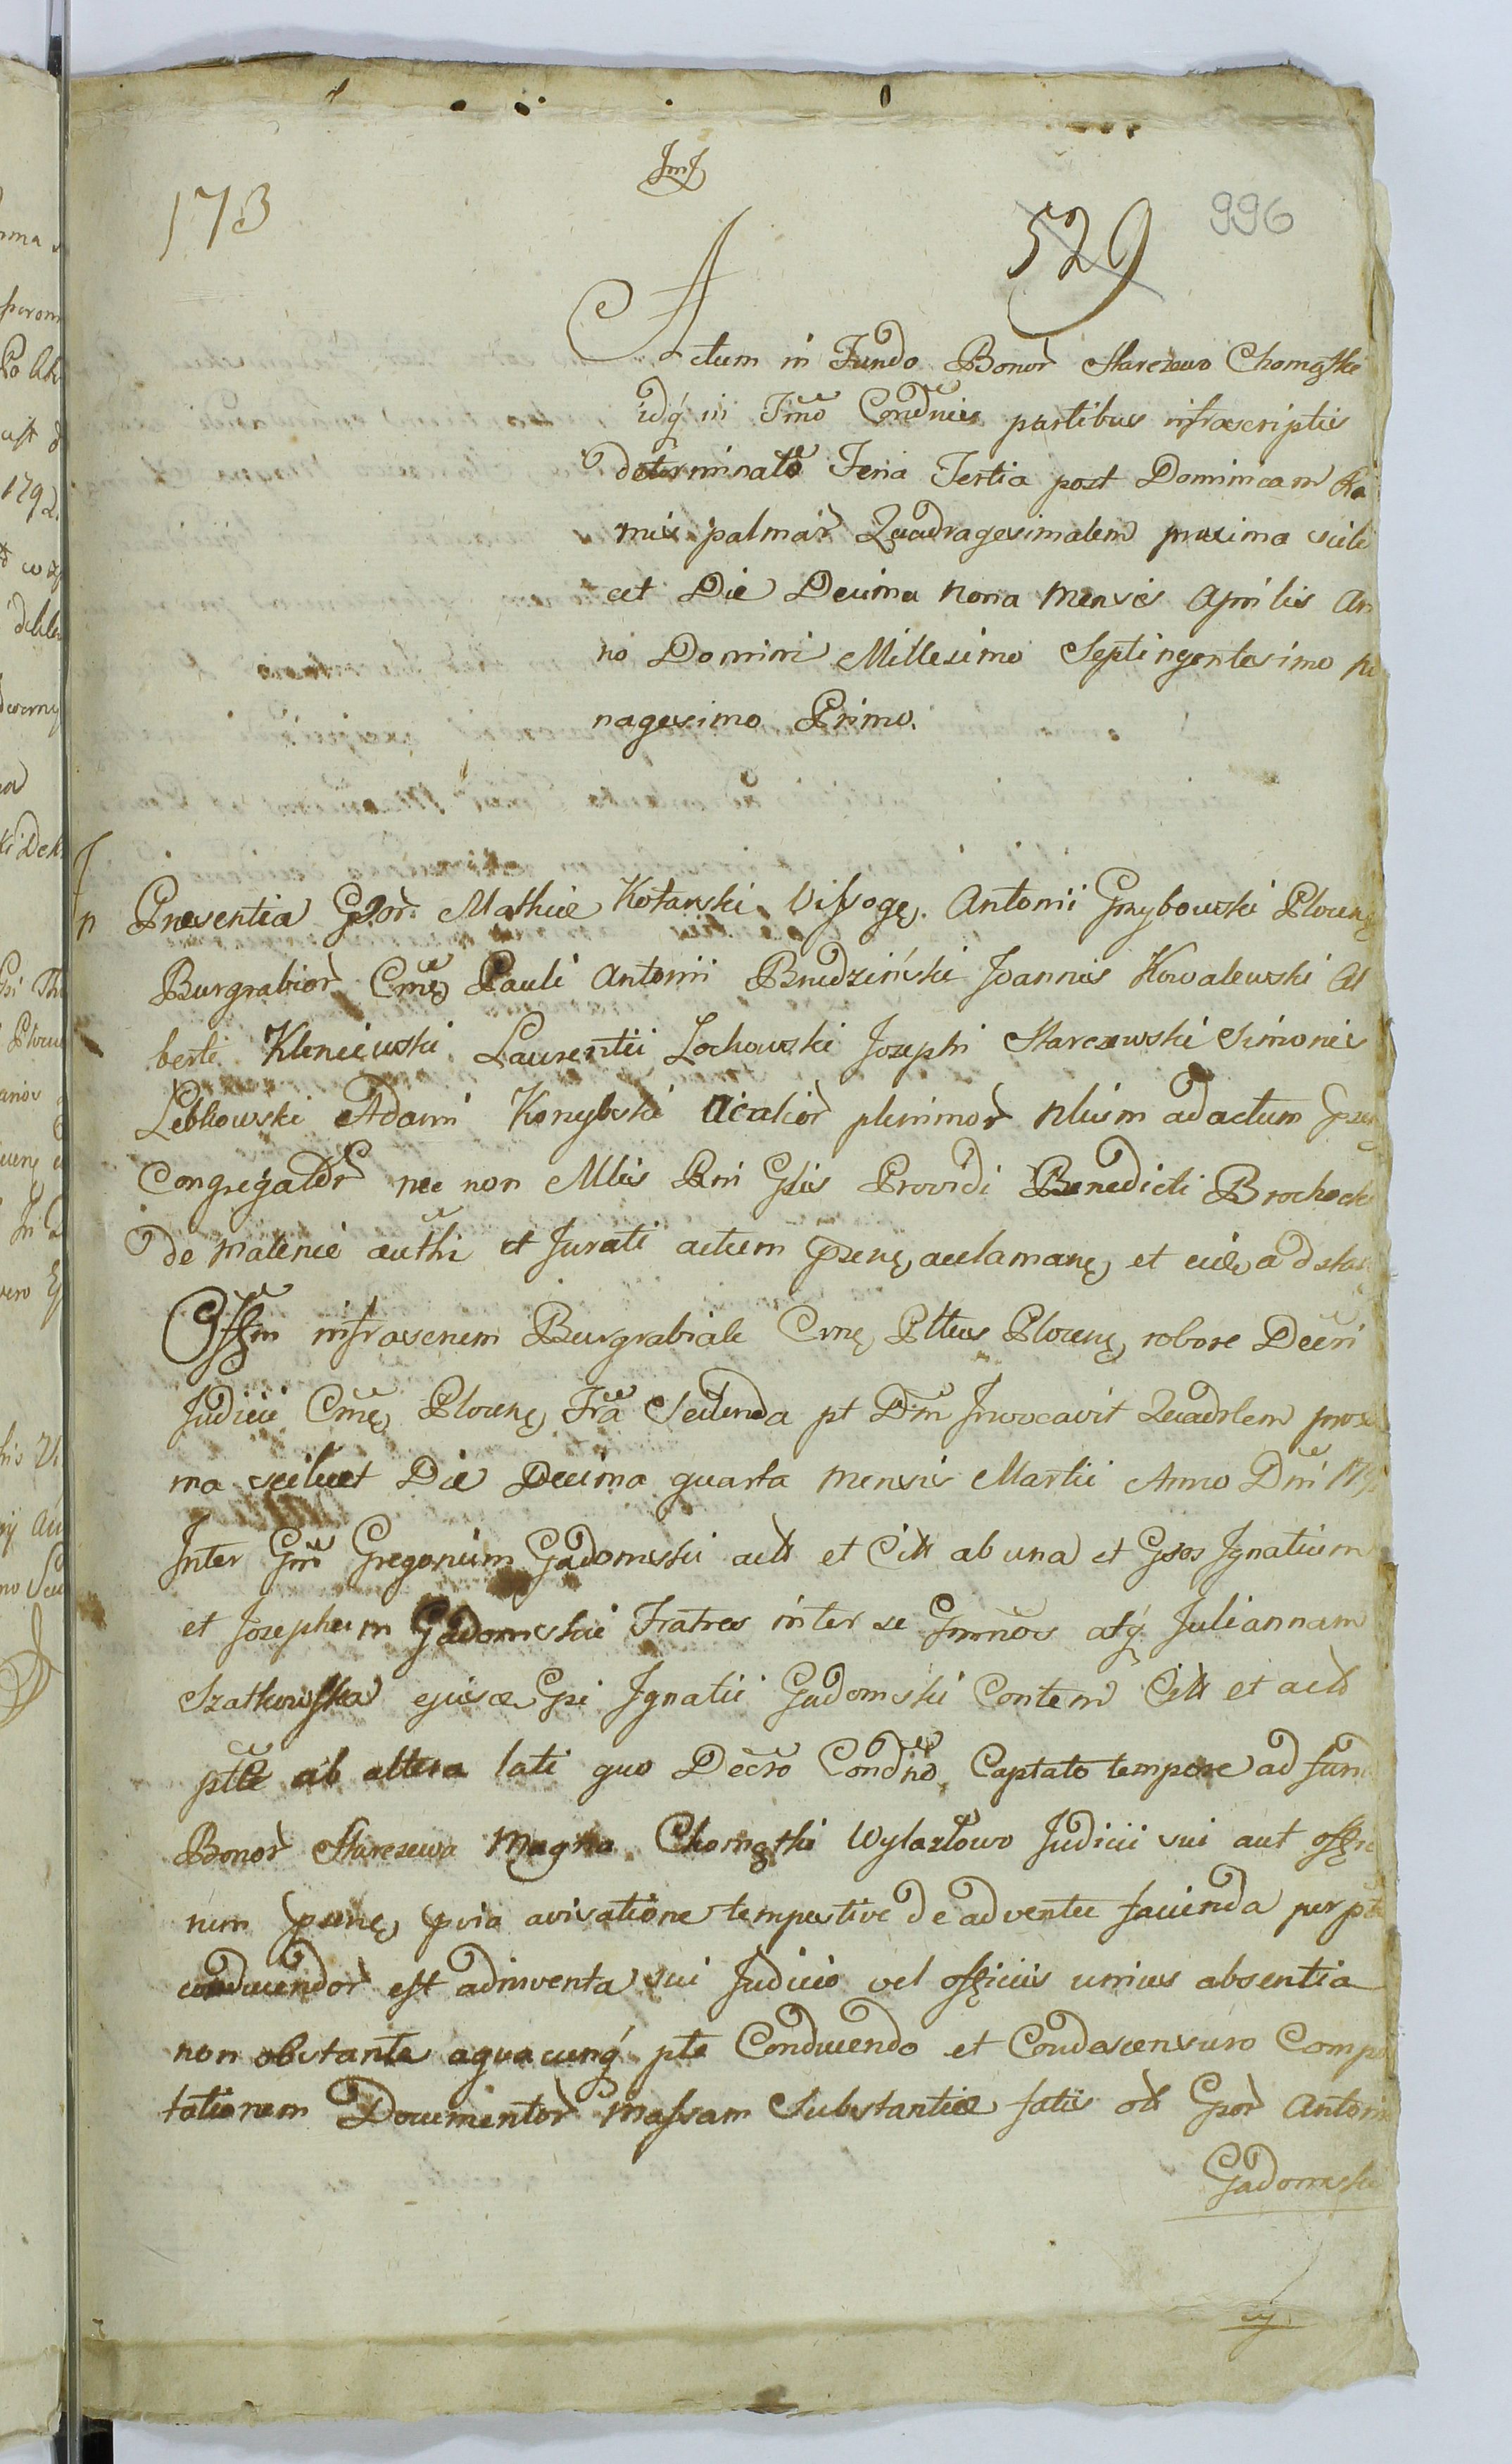 Jmſ
173
529
996
Actum in Fundo Bonor̃ Starczewo Chomątki
idq́ in Tm̃o Condnis partibus infrascriptis
determinato Feria Tertia post Dominicam Ra
mis palmar̃ Quadragesimalem proxima scili
cet Die Decima nona Mensis Aprilis An
no Domini Millesimo Septingentesimo no
nagesimo Primo.
In Presentia Gsor̃. Mathiæ Kotarski Vissogę. Antonii Grzybowski Plocenę
Burgrabior̃ Crnę Pauli Antonii Brudziński Joannis Kowalewski Al
berti Kleniewski Laurentii Lochowski Josephi Starczewski Simonis
Lebkowski Adami Konybski alior̃ plurimor̃ Nlium ad actum pzenę
Congregator̃ nec non Mlis Rni Gslis Providi Benedicti Brochocki
de Malenie authi et Jurati actum pzenę, acclamanę, et eidę adstanę
Offm infrascrnem Burgrabiale Crnę Plltus Plocenę, robore Decri
Judicii Crnę Plocenę, Fra Secunda pt Dm Invocavit Quadrlem proxi
ma scilicet Die Decima quarta Mensis Martii Anno Dni 179
Inter Gm Gregorium Gadomski actt et Citt ab una et Gsos Ignatium
et Josephum Gadomskie Fratres inter se Grmnos atq́ Juliannam
Szatkowska ejusæ Gsi Ignatii Gadomski Contem Citt et actt
ptte ab altera lati quo Decro Condno, Captato tempore ad fun
Bonor̃ Starczewa Magna Chomątki Wylazłowo Judicii sui aut offio
num pzenę, pvia avisatione tempestive de adventu facienda per pte
conducendor̃ est adinventa sui Judicio vel officiis unius absentia
non obstante aquacunq́ pte Conducendo et Condescensuro Compu
tationem Documentor̃ Massam Substantiæ fatis ott Gsor̃ Antonii
Gadomski